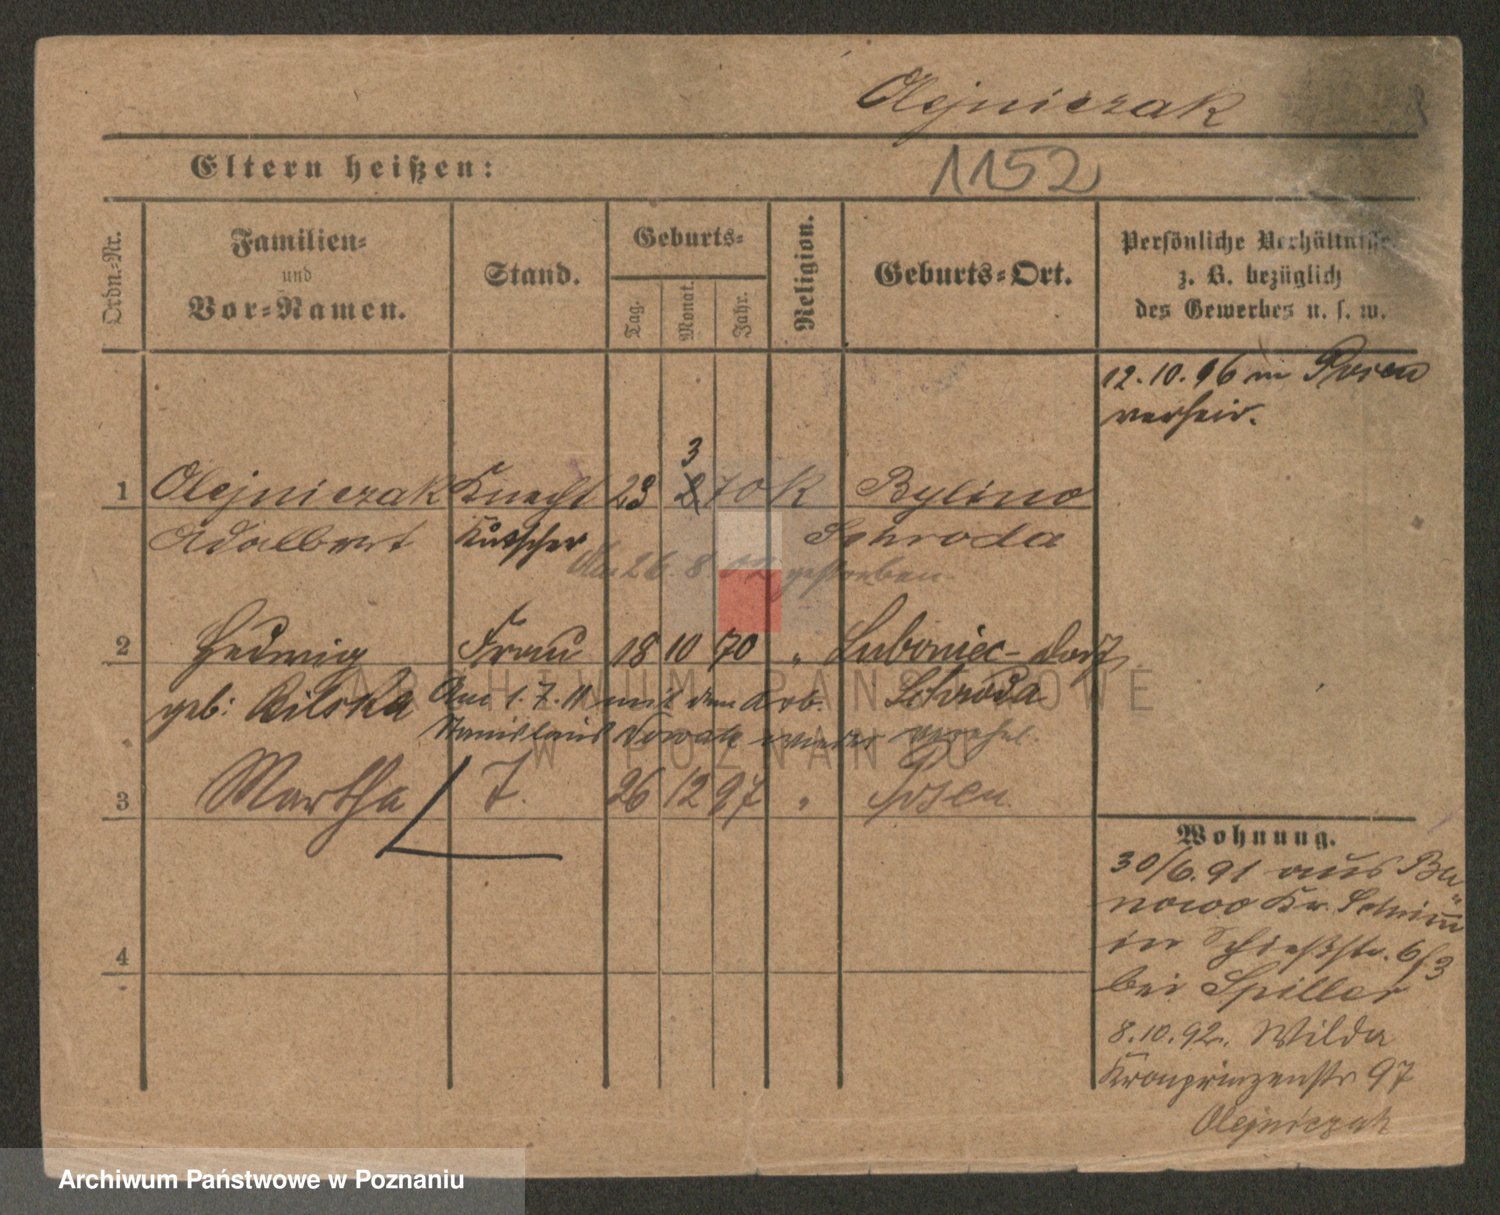 Olejniczak
Eltern heißen:
1152
Ordn.-Nr.
Familien-
und
Vor-Namen.
Stand.
Geburts-
Tag.
Monat.
Jahr.
Religion.
Geburts-Ort.
Persönliche Verhältnisse
z. B. bezüglich
des Gewerbes u. s. w.
12.10.96 in Posen
verheir.
3
1 Olejniczak Knecht 23 2 70 K Bylino
Adalbert Kutscher Schroda
Am 26.8.02 gestorben.
2 Hedwig Frau 18 10 70 " Luboniec-Dorf
geb: Bilska Am 1.7.11 mit dem Arb. Schroda
Stanislaus Nowak wieder verehel.
3 Martha T. 26 12 97 " Posen
4
Wohnung.
30/6.91 aus
nowo Kr. Schrim
in Schießstr. 6/3
bei Spiller
8.10.92. Wilda
Kronprinzenstr 97
Olejniczak
ARCHIWUM PAŃSTWOWE
W POZNANIU
Archiwum Państwowe w Poznaniu